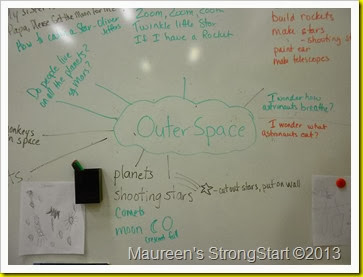 My sister
Papa, Please Get the Moon for Me
How to catch a Star - Oliver Jeffers
Zoom, Zoom, Zoom
Twinkle little Star
If I have a Rocket
build rockets
make stars
- shooting
paint car
make telescopes
Do people live
on all the planets?
or mars?
Outer Space
I wonder how
astronauts breathe?
I wonder what
astronauts eat?
monkeys
in space
planets
shooting stars
cut out stars, put on wall
Comets
moon
Maureen's StrongStart ©2013